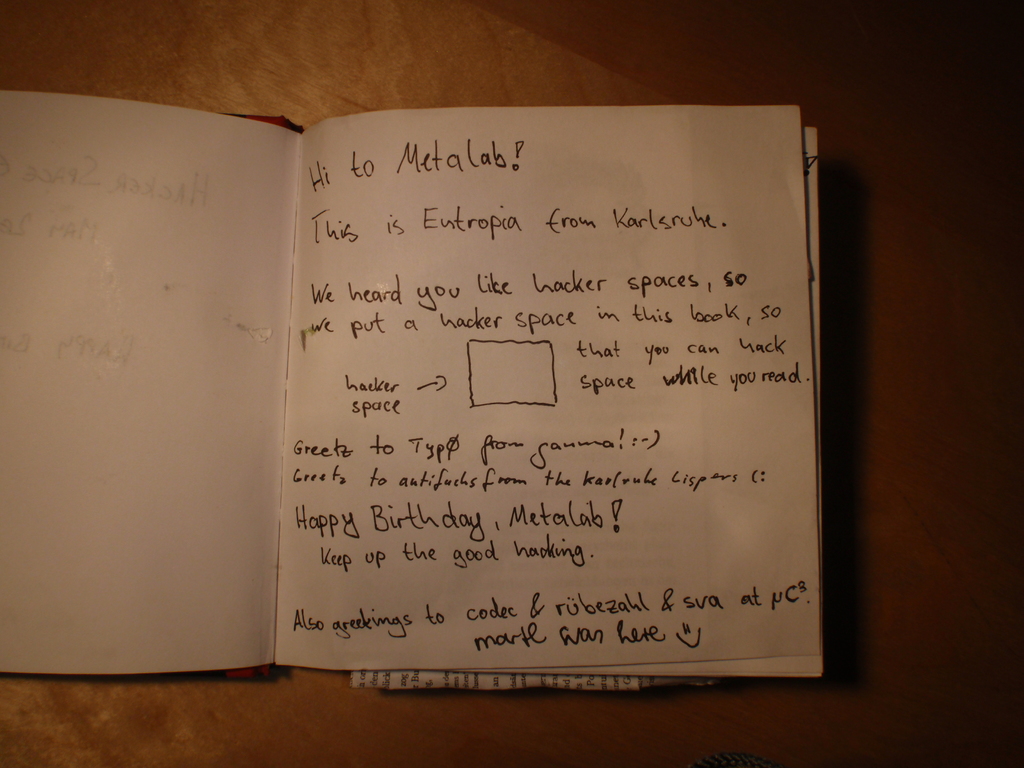 Hi to Metalab!
This is Entropia from Karlsruhe.
We heard you like hacker spaces, so
we put a hacker space in this book, so
that you can hack
space while you read.
hacker →
space
Greetz to TypØ from gamma! :-)
Greetz to antifuchs from the Karlsruhe Lispers (:
Happy Birthday, Metalab!
Keep up the good hacking.
Also greetings to codec & rübezahl & sva at µC³.
martl was here
HACKER SPACE
HAPPY